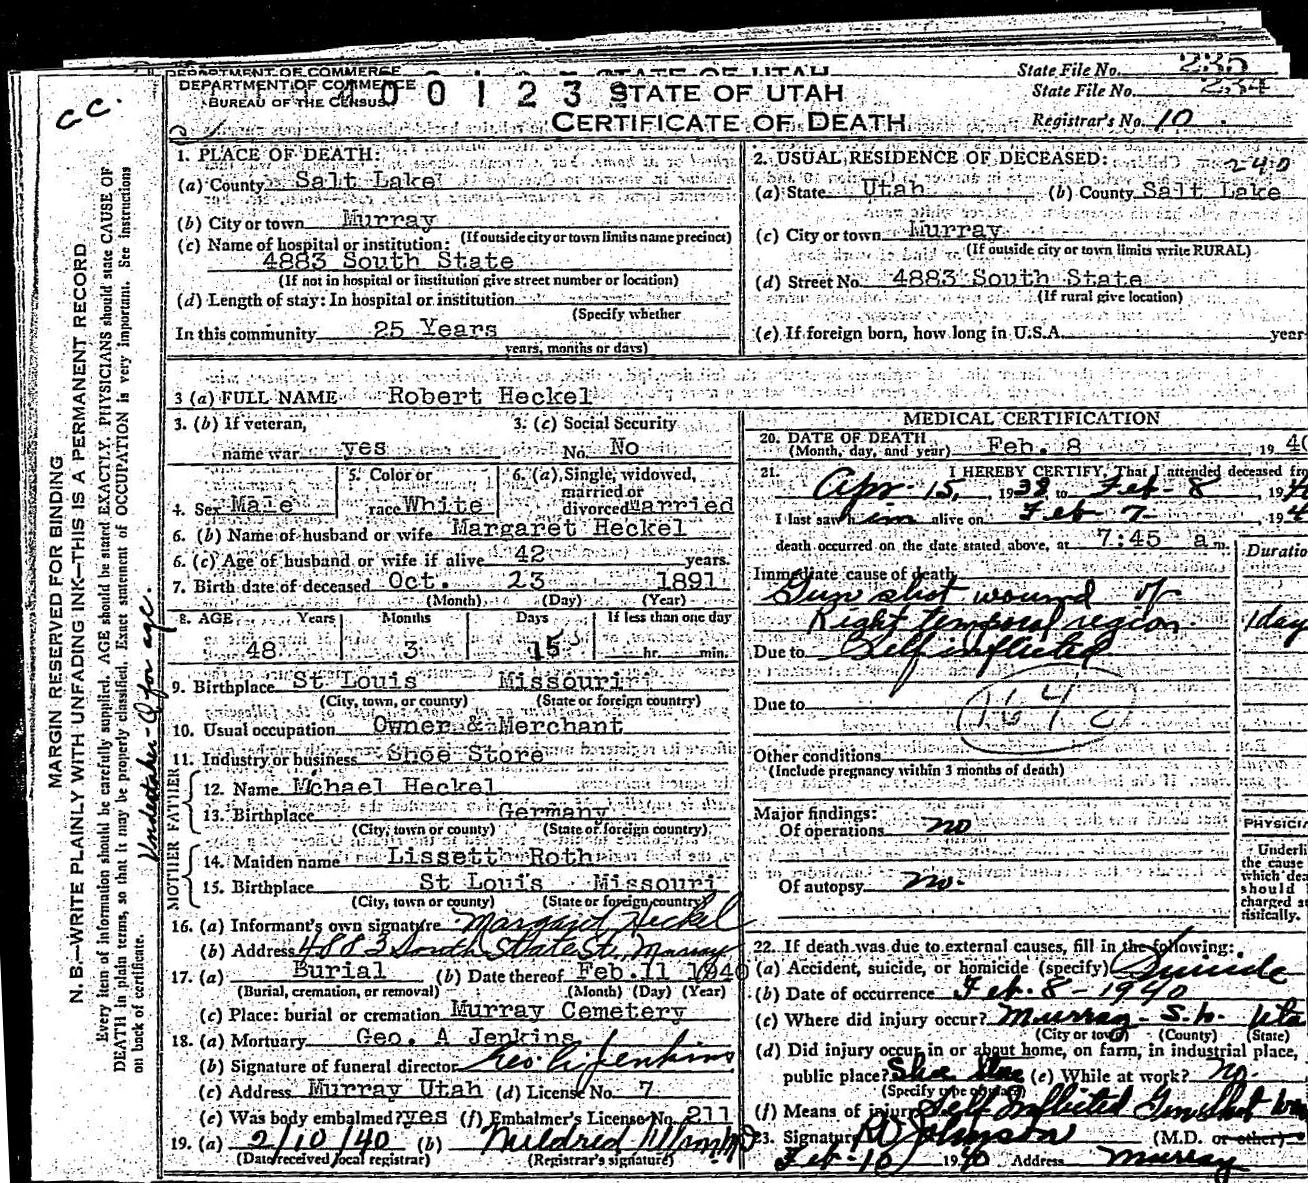 DEPARTMENT OF COMMERCE STATE OF UTAH State File No. 235
DEPARTMENT OF COMMERCE 400 01239 STATE OF UTAH State File No. 234
BUREAU OF THE CENSUS
CERTIFICATE OF DEATH Registrar's No. 10
C C.
1. PLACE OF DEATH:
(a) County Salt Lake
(b) City or town Murray
(If outside city or town limits name precinct)
(c) Name of hospital or institution:
4883 South State
(If not in hospital or institution give street number or location)
(d) Length of stay: In hospital or institution
(Specify whether
In this community 25 Years
years, months or days)
2. USUAL RESIDENCE OF DECEASED: 240
(a) State Utah (b) County Salt Lake
(c) City or town Murray
(If outside city or town limits write RURAL)
(d) Street No. 4883 South State
(If rural give location)
(e) If foreign born, how long in U.S.A. years
3 (a) FULL NAME Robert Heckel
3. (b) If veteran, 3. (c) Social Security
name war yes No. No
4. Sex Male 5. Color or race White 6. (a) Single, widowed, married or divorced married
6. (b) Name of husband or wife Margaret Heckel
6. (c) Age of husband or wife if alive 42 years.
7. Birth date of deceased Oct. 23 1891
(Month) (Day) (Year)
8. AGE Years Months Days If less than one day
48 3 15 hr. min.
9. Birthplace St Louis Missouri
(City, town, or county) (State or foreign country)
10. Usual occupation Owner & Merchant
11. Industry or business Shoe Store
FATHER
12. Name Mchael Heckel
13. Birthplace Germany
(City, town or county) (State or foreign country)
MOTHER
14. Maiden name Lissett Roth
15. Birthplace St Louis Missouri
(City, town or county) (State or foreign country)
16. (a) Informant's own signature Margaret Heckel
(b) Address 4883 South State St., Murray
17. (a) Burial (b) Date thereof Feb. 11 1940
(Burial, cremation, or removal) (Month) (Day) (Year)
(c) Place: burial or cremation Murray Cemetery
18. (a) Mortuary Geo. A Jenkins
(b) Signature of funeral director Geo. A. Jenkins
(c) Address Murray Utah (d) License No. 7
(e) Was body embalmed? yes (f) Embalmer's License No. 211
19. (a) 2/10/40 (b) Mildred
(Date received local registrar) (Registrar's signature)
MEDICAL CERTIFICATION
20. DATE OF DEATH Feb. 8 19 40
(Month, day, and year)
21. I HEREBY CERTIFY, That I attended deceased from
Apr. 15, 1938 to Feb - 8, 19
I last saw him alive on Feb 7 - , 19
death occurred on the date stated above, at 7:45 a m.
Duratio
Immediate cause of death
Gun shot wound of
Right temporal region. 1 day
Due to Self inflicted
164 c
Due to
Other conditions
(Include pregnancy within 3 months of death)
Major findings:
Of operations no
Of autopsy no.
PHYSICIA
Underli
the cause
which dea
should
charged st
tistically.
22. If death was due to external causes, fill in the following:
(a) Accident, suicide, or homicide (specify) Suicide
(b) Date of occurrence Feb. 8 - 1940
(c) Where did injury occur? Murray - S.L. Uta
(City or town) (County) (State)
(d) Did injury occur in or about home, on farm, in industrial place,
public place? Shoe Store (e) While at work? No.
(Specify type of place)
(f) Means of injury Self Inflicted Gunshot
23. Signature Johnson (M.D. or other)
Feb - 10, 1940 Address Murray
MARGIN RESERVED FOR BINDING
N. B.—WRITE PLAINLY WITH UNFADING INK—THIS IS A PERMANENT RECORD
Every item of information should be carefully supplied. AGE should be stated EXACTLY. PHYSICIANS should state CAUSE OF
DEATH in plain terms, so that it may be properly classified. Exact statement of OCCUPATION is very important. See Instructions
on back of certificate.
Undertaker - for age.